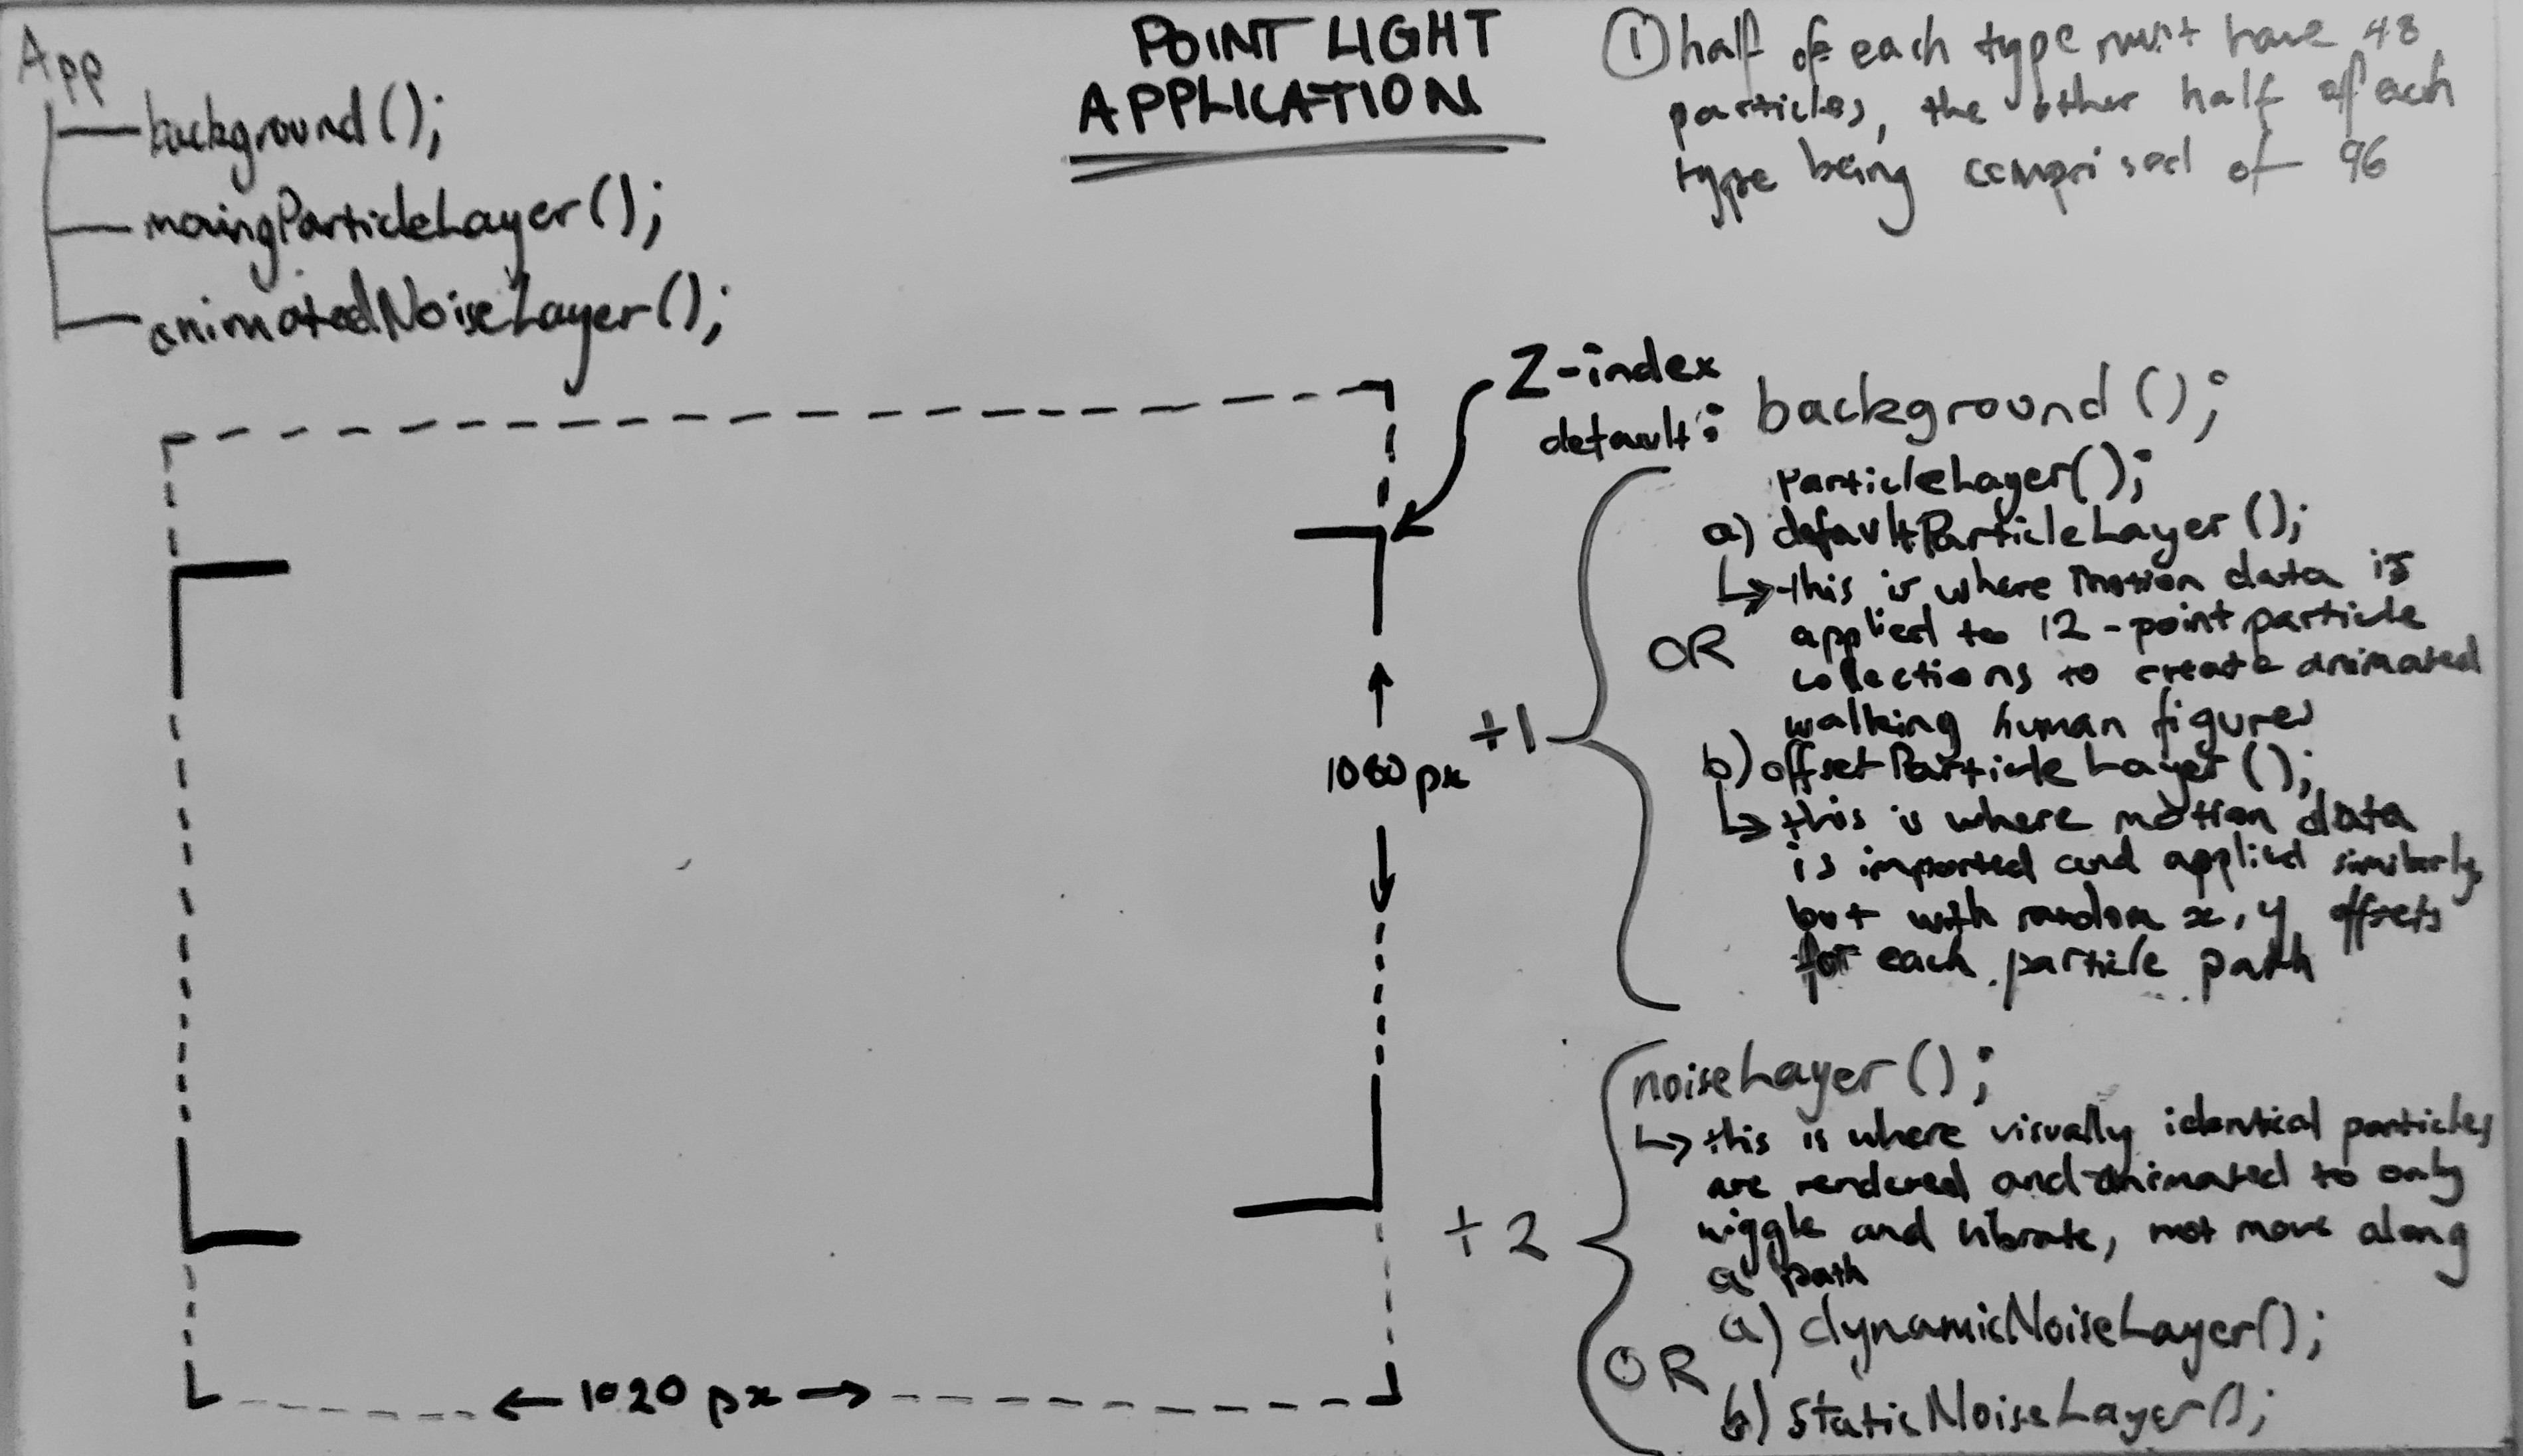 App
background();
movingParticleLayer();
animatedNoiseLayer();
POINT LIGHT
APPLICATION
① half of each type must have 48
particles, the other half of each
type being comprised of 96
Z-index
default: background();
+1
particleLayer();
a) defaultParticleLayer();
↳ this is where motion data is
applied to 12-point particle
collections to create animated
walking human figures
OR
b) offsetParticleLayer();
↳ this is where motion data
is imported and applied similarly,
but with random x, y offsets
for each particle path
1080 px
1020 px
+2
noiseLayer();
↳ this is where visually identical particles
are rendered and animated to only
wiggle and vibrate, not move along
a path
a) dynamicNoiseLayer();
OR
b) staticNoiseLayer();